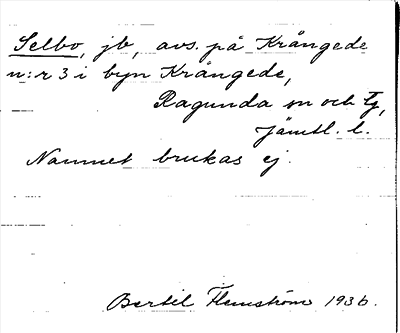 Selbo, jb, avs. på Krångede
n:r 3 i byn Krångede,
Ragunda sn och tg,
Jämtl. l.
Namnet brukas ej.
Bertil Flemström 1936.